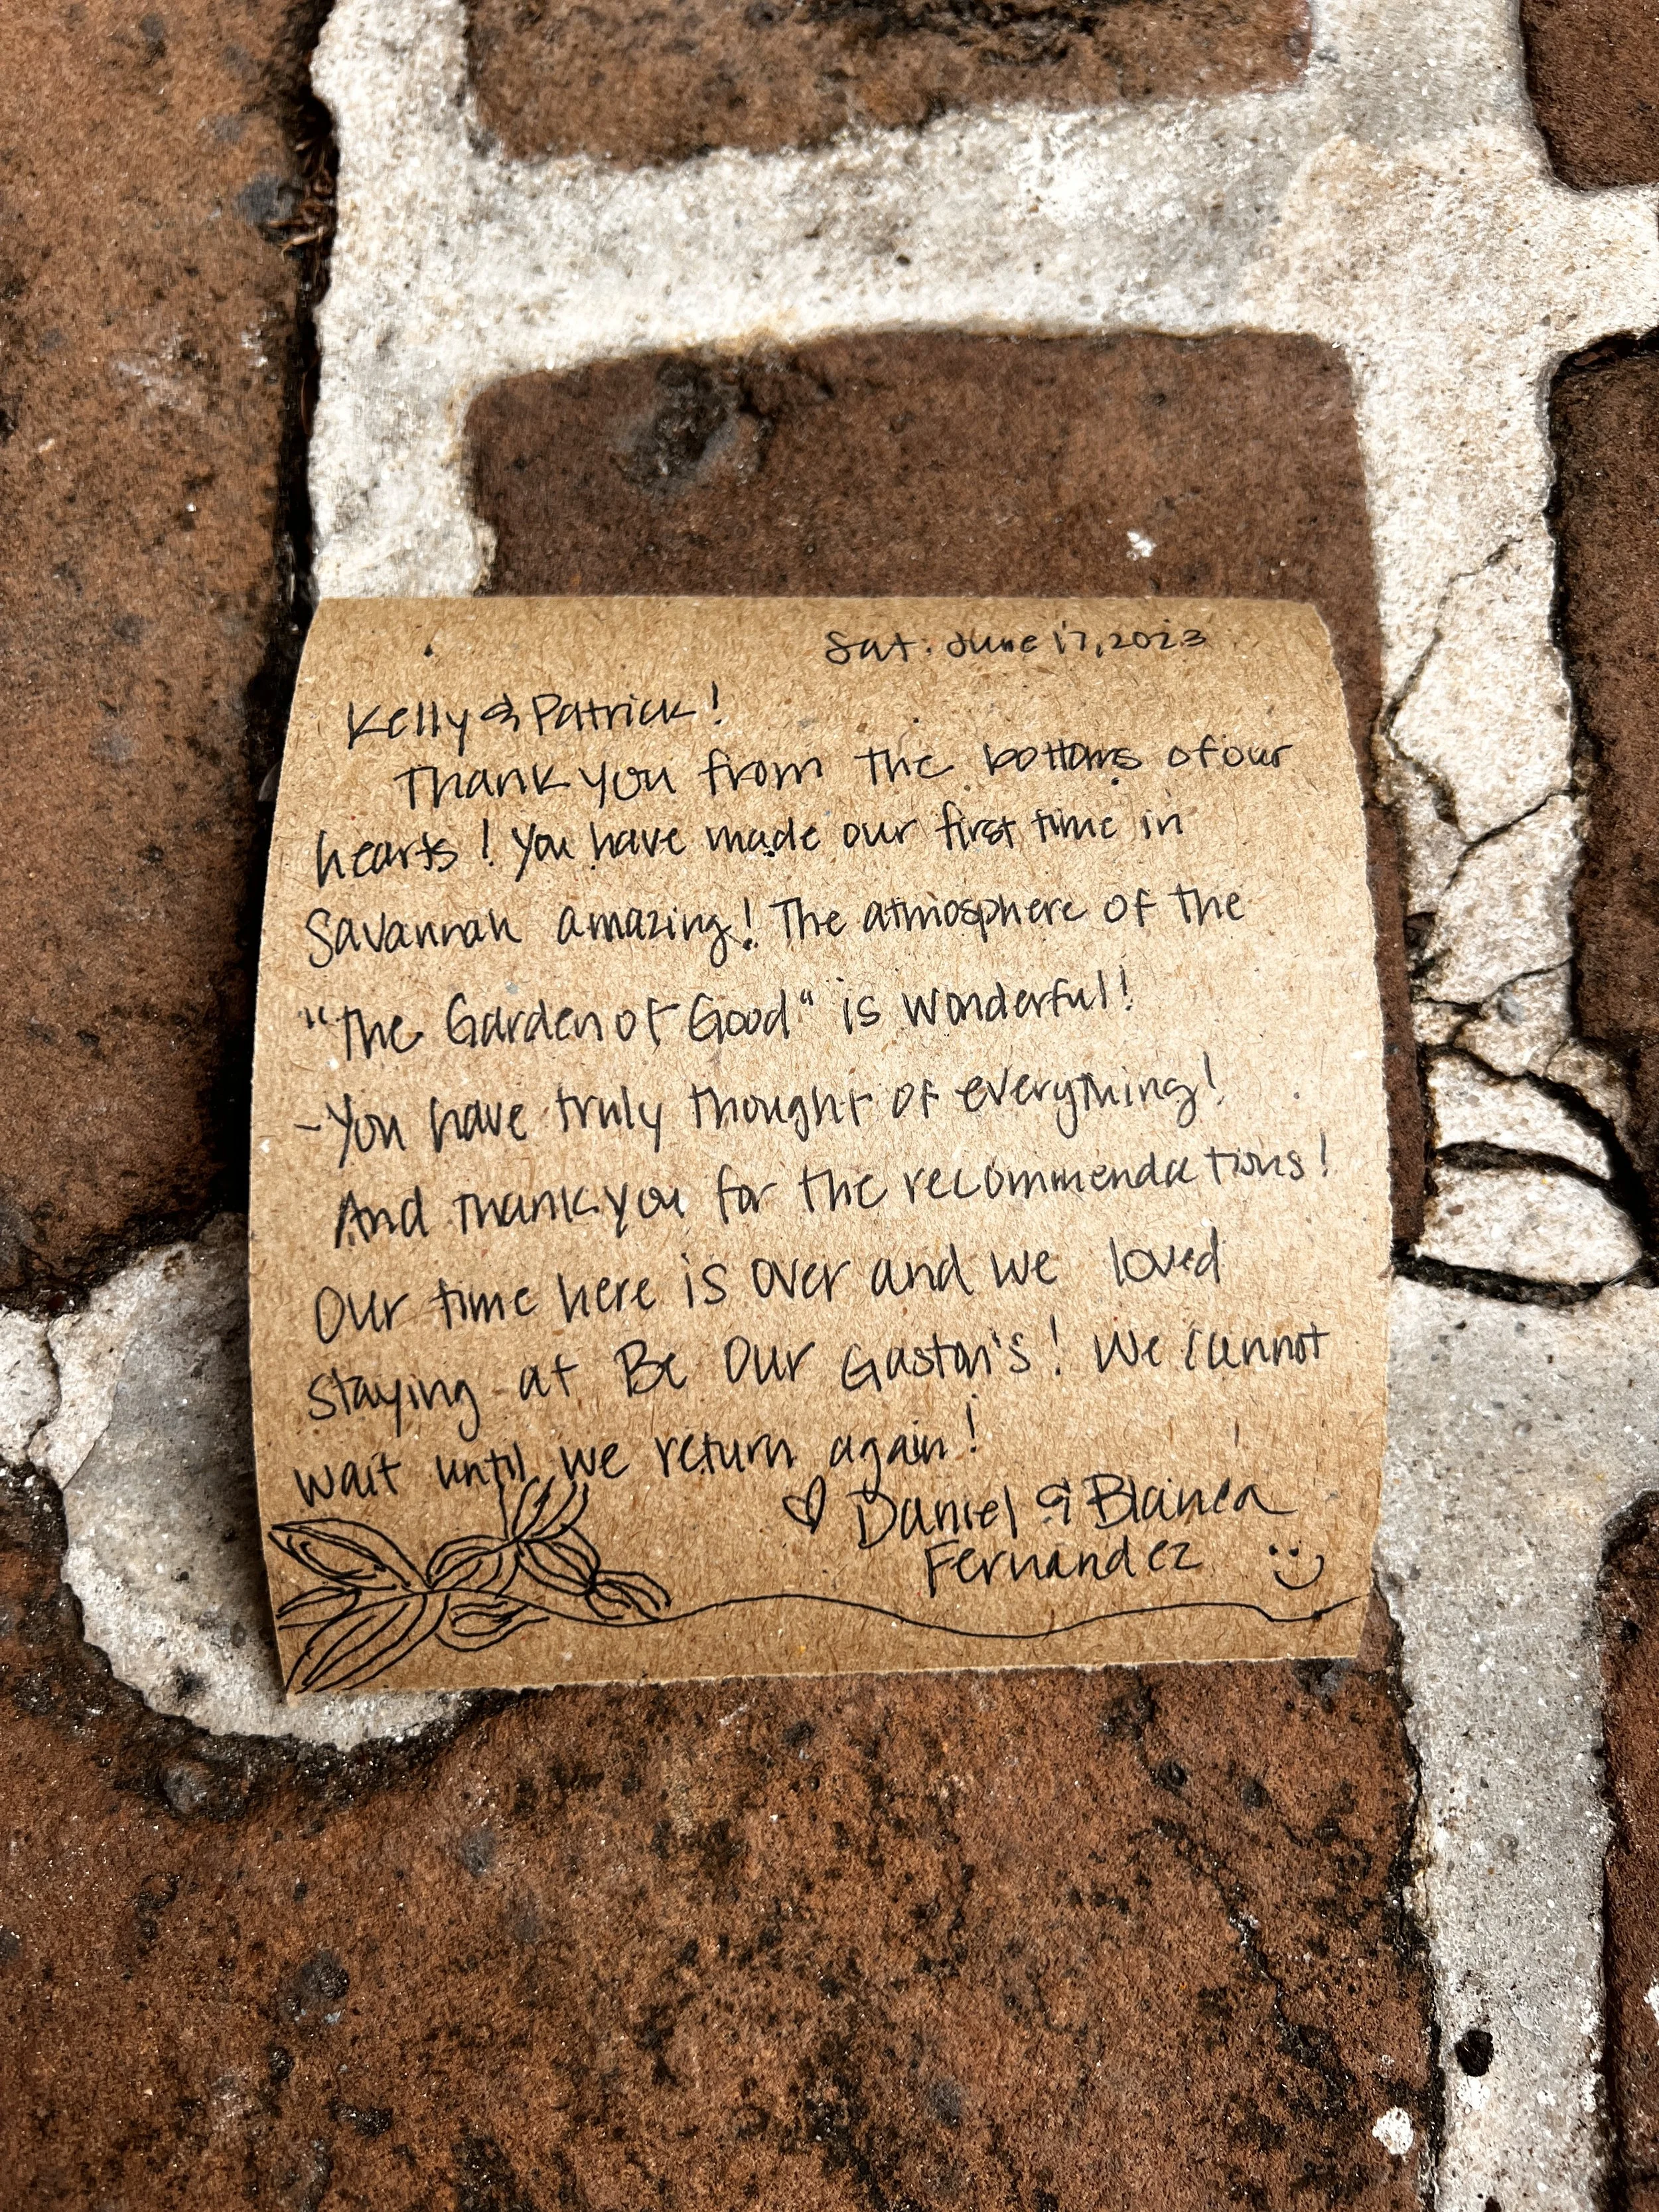 Sat. June 17, 2023
Kelly & Patrick!
Thank you from the bottoms of our
hearts! You have made our first time in
Savannah amazing! The atmosphere of the
"The Garden of Good" is wonderful!
- You have truly thought of everything!
And thank you for the recommendations!
Our time here is over and we loved
staying at Be Our Gaston's! We cannot
wait until we return again!
♡ Daniel & Blanca
Fernandez :)